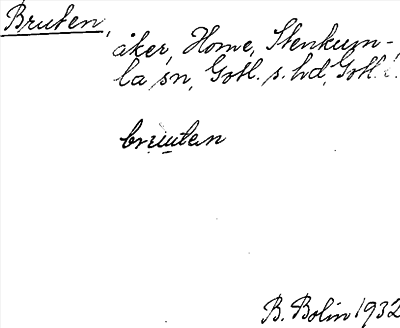 Bruten,
åker, Home, Stenkum-
la sn, Gotl. s. hd, Gotl. l.
bruuten
B. Bolin 1932